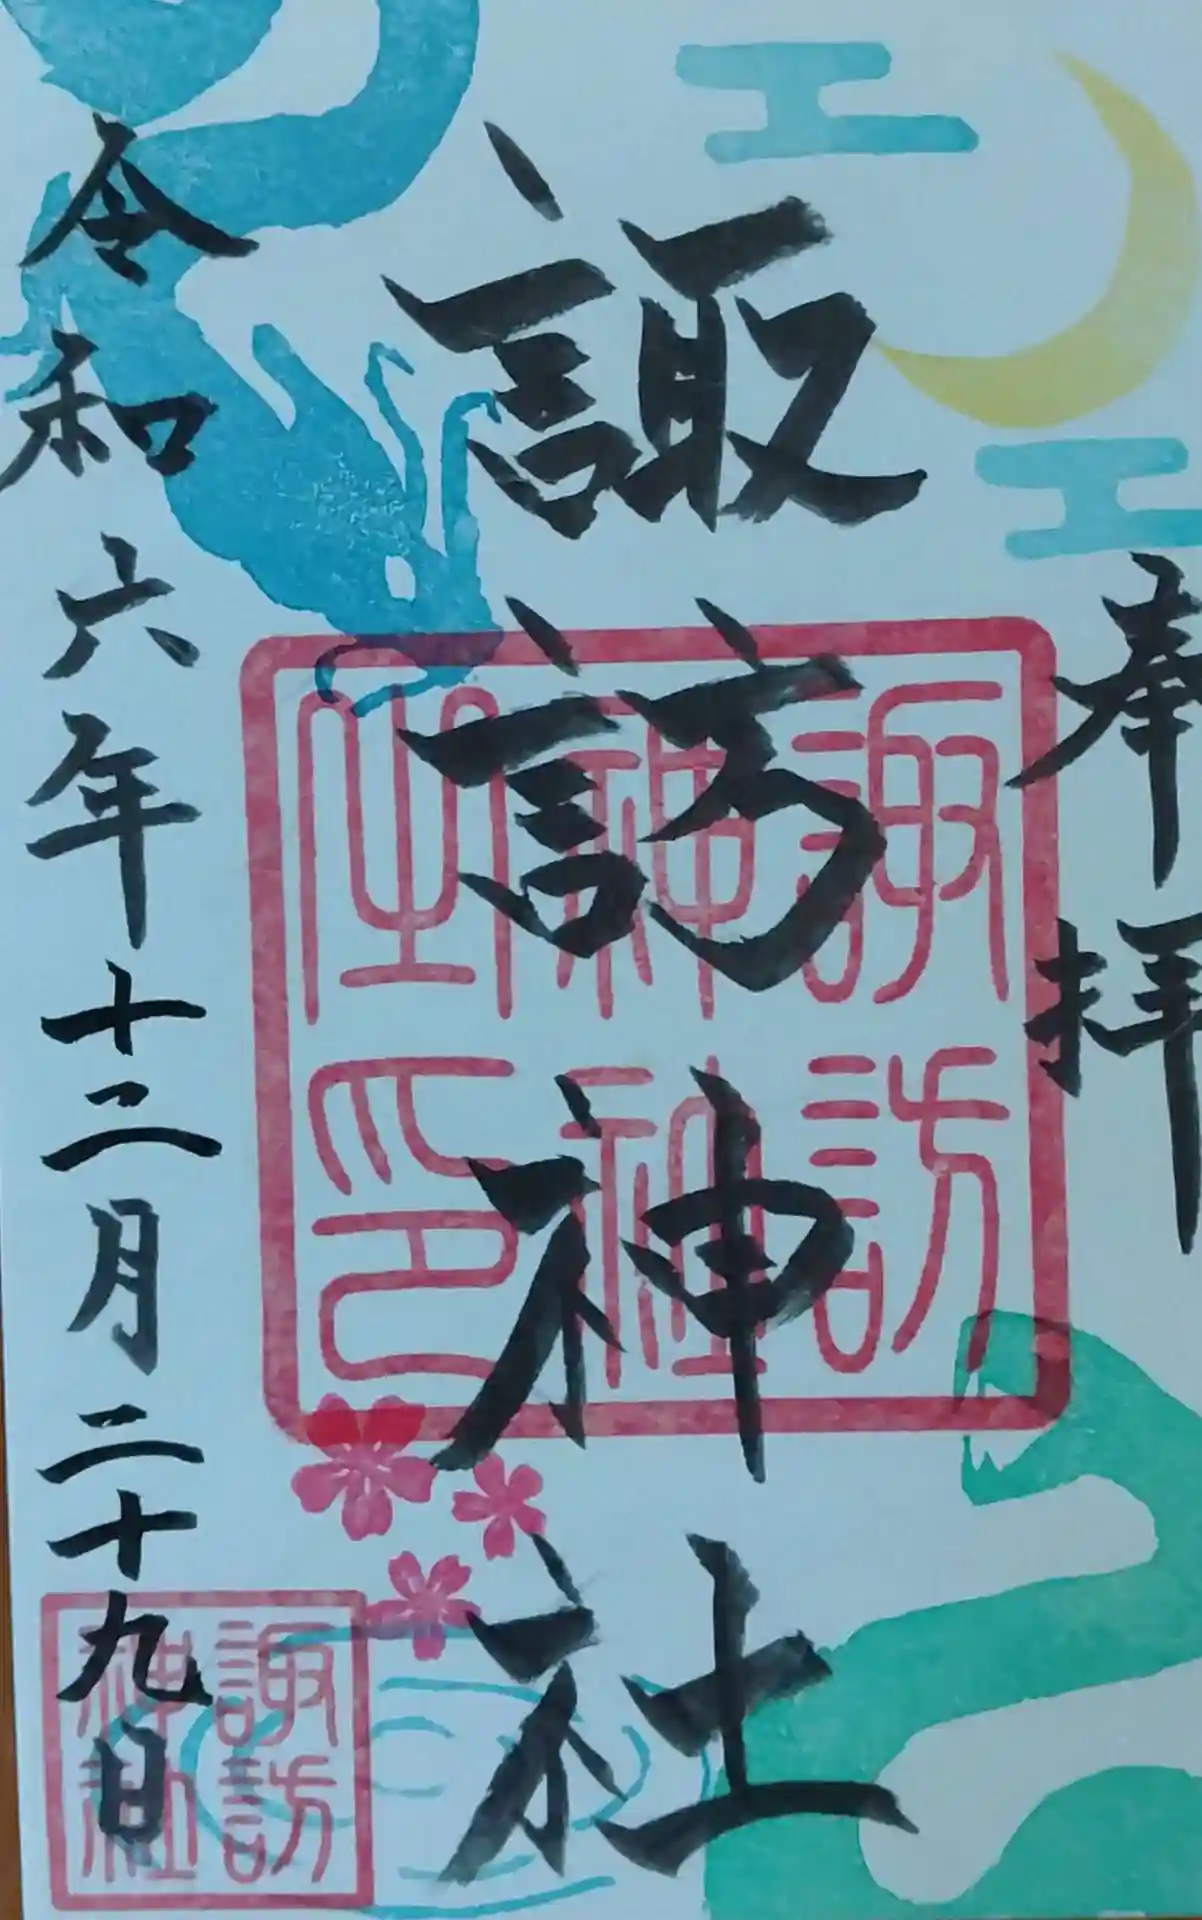 奉拝
諏訪神社
諏訪
神社
之印
令和六年十二月二十九日
諏訪
神社